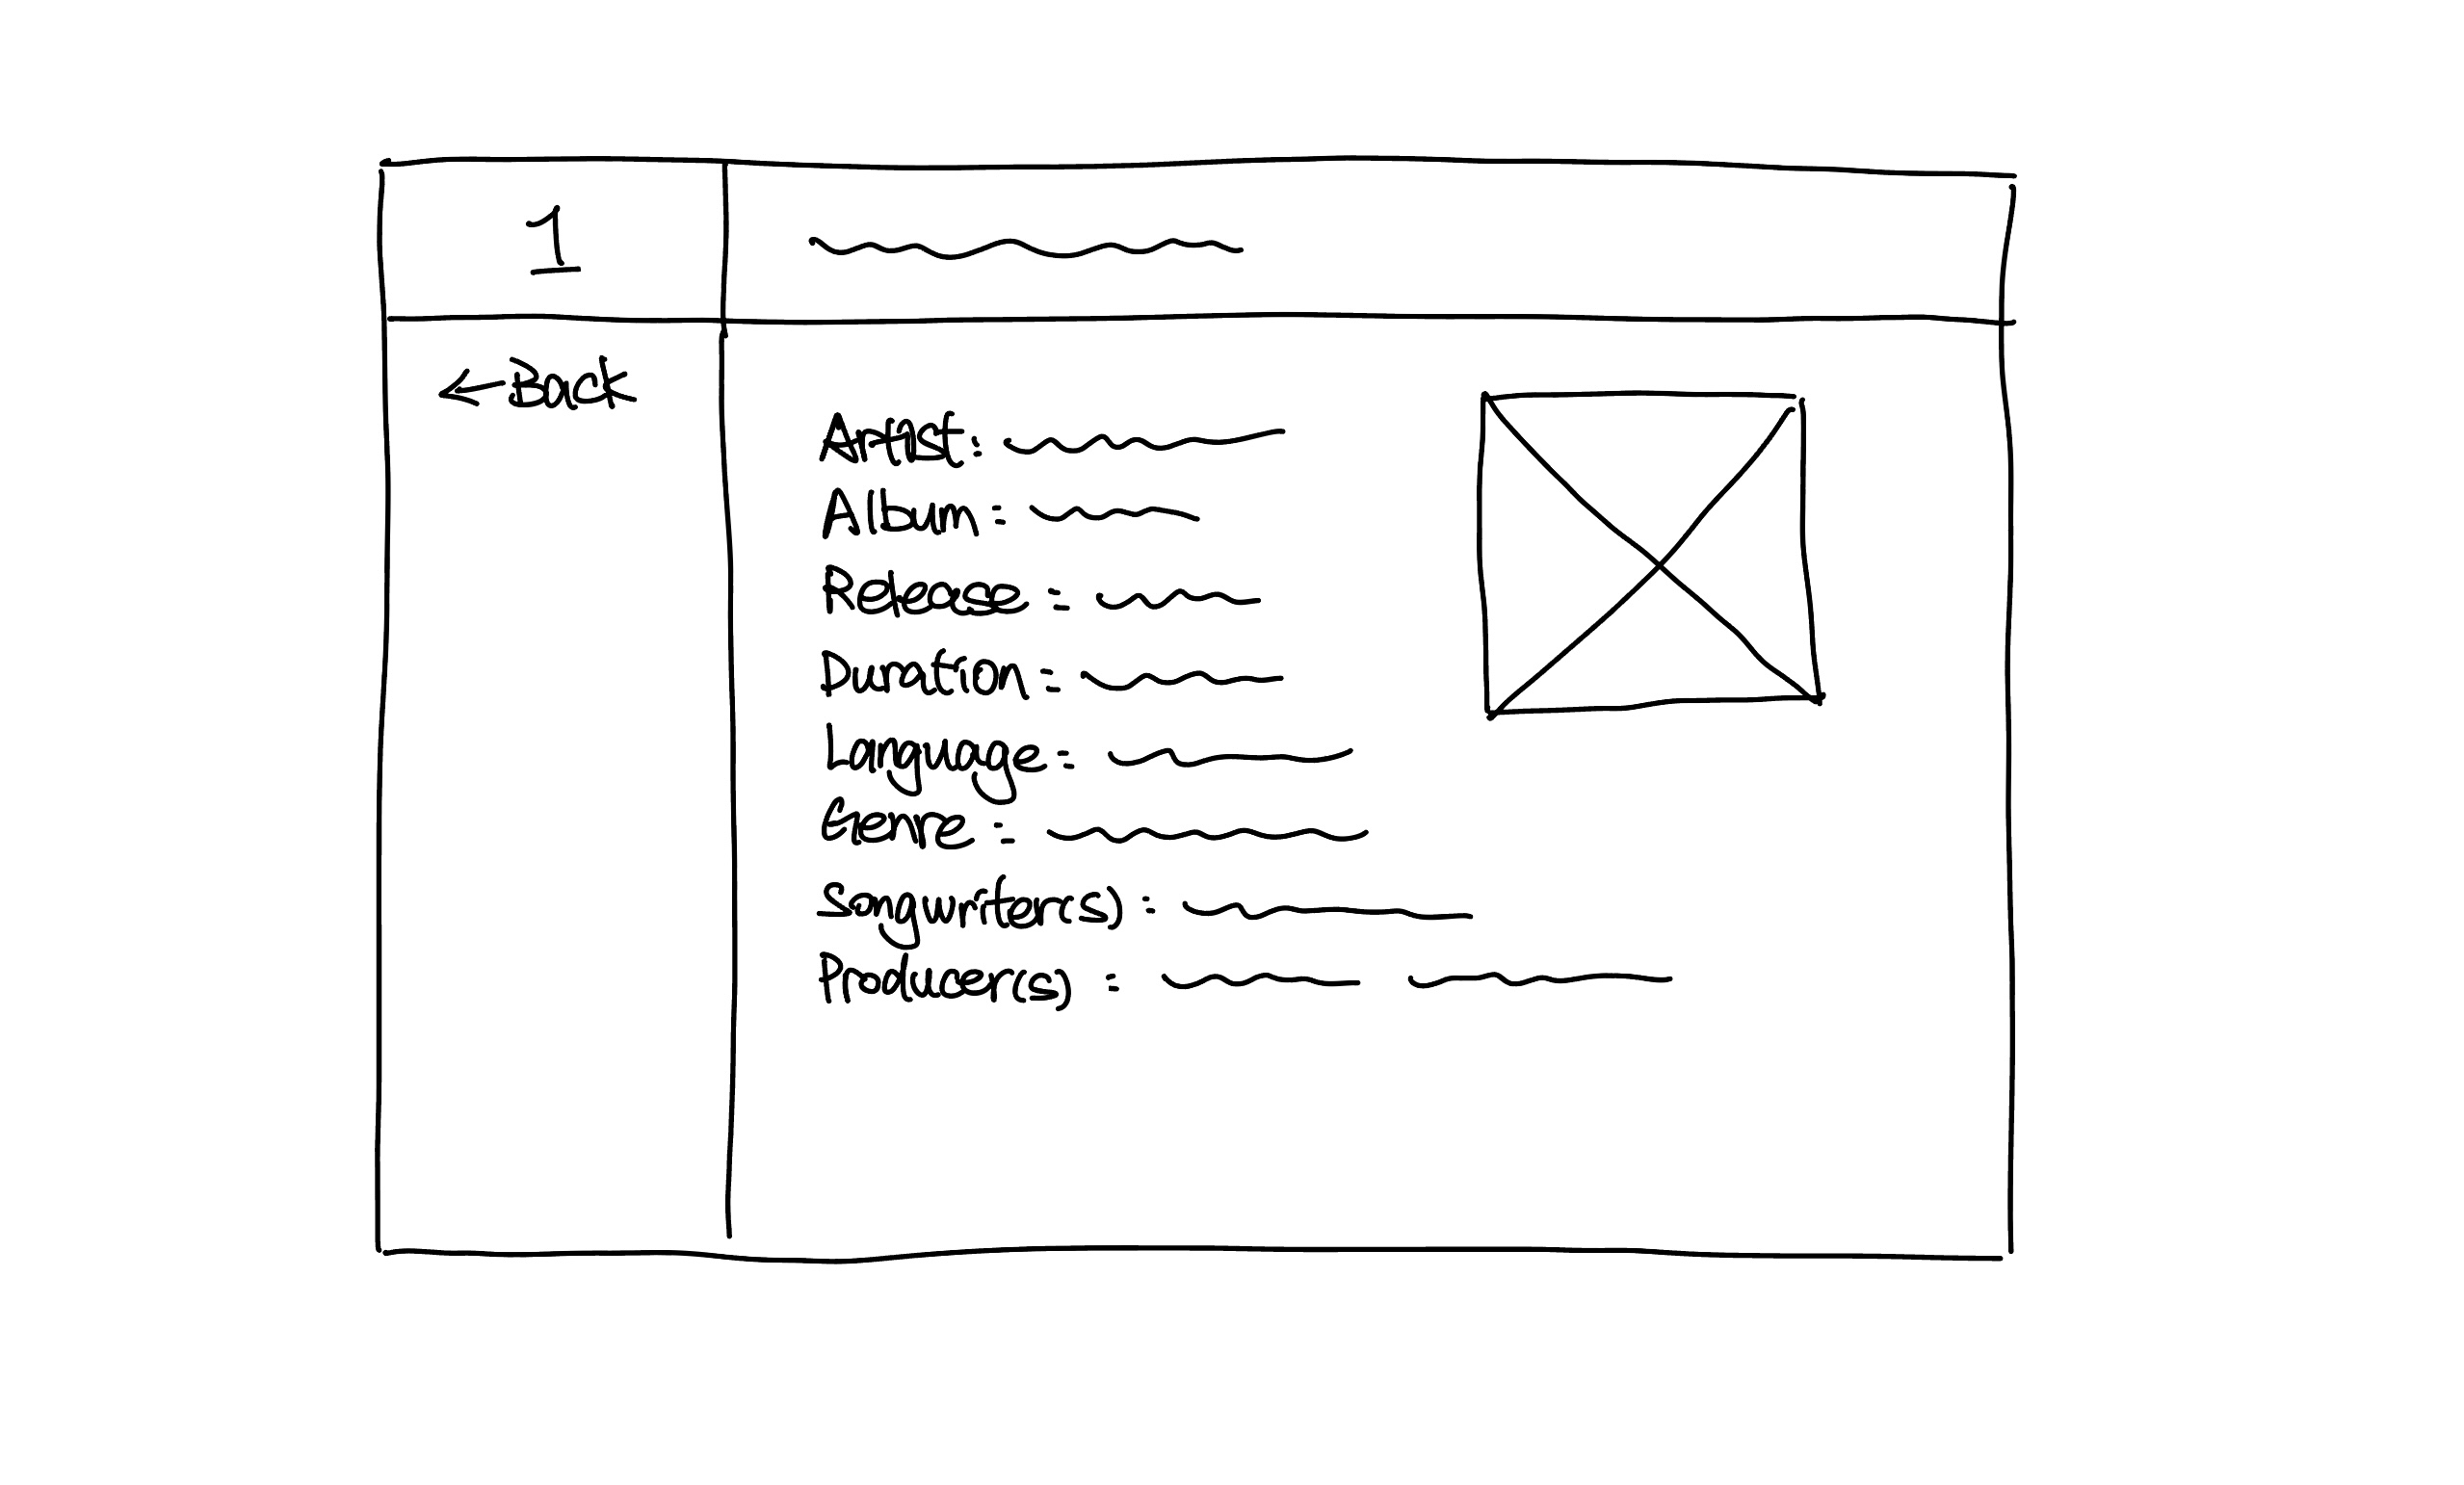 1
← Back
Artist:
Album:
Release:
Duration:
Language:
Genre:
Songwriter(s):
Producer(s):